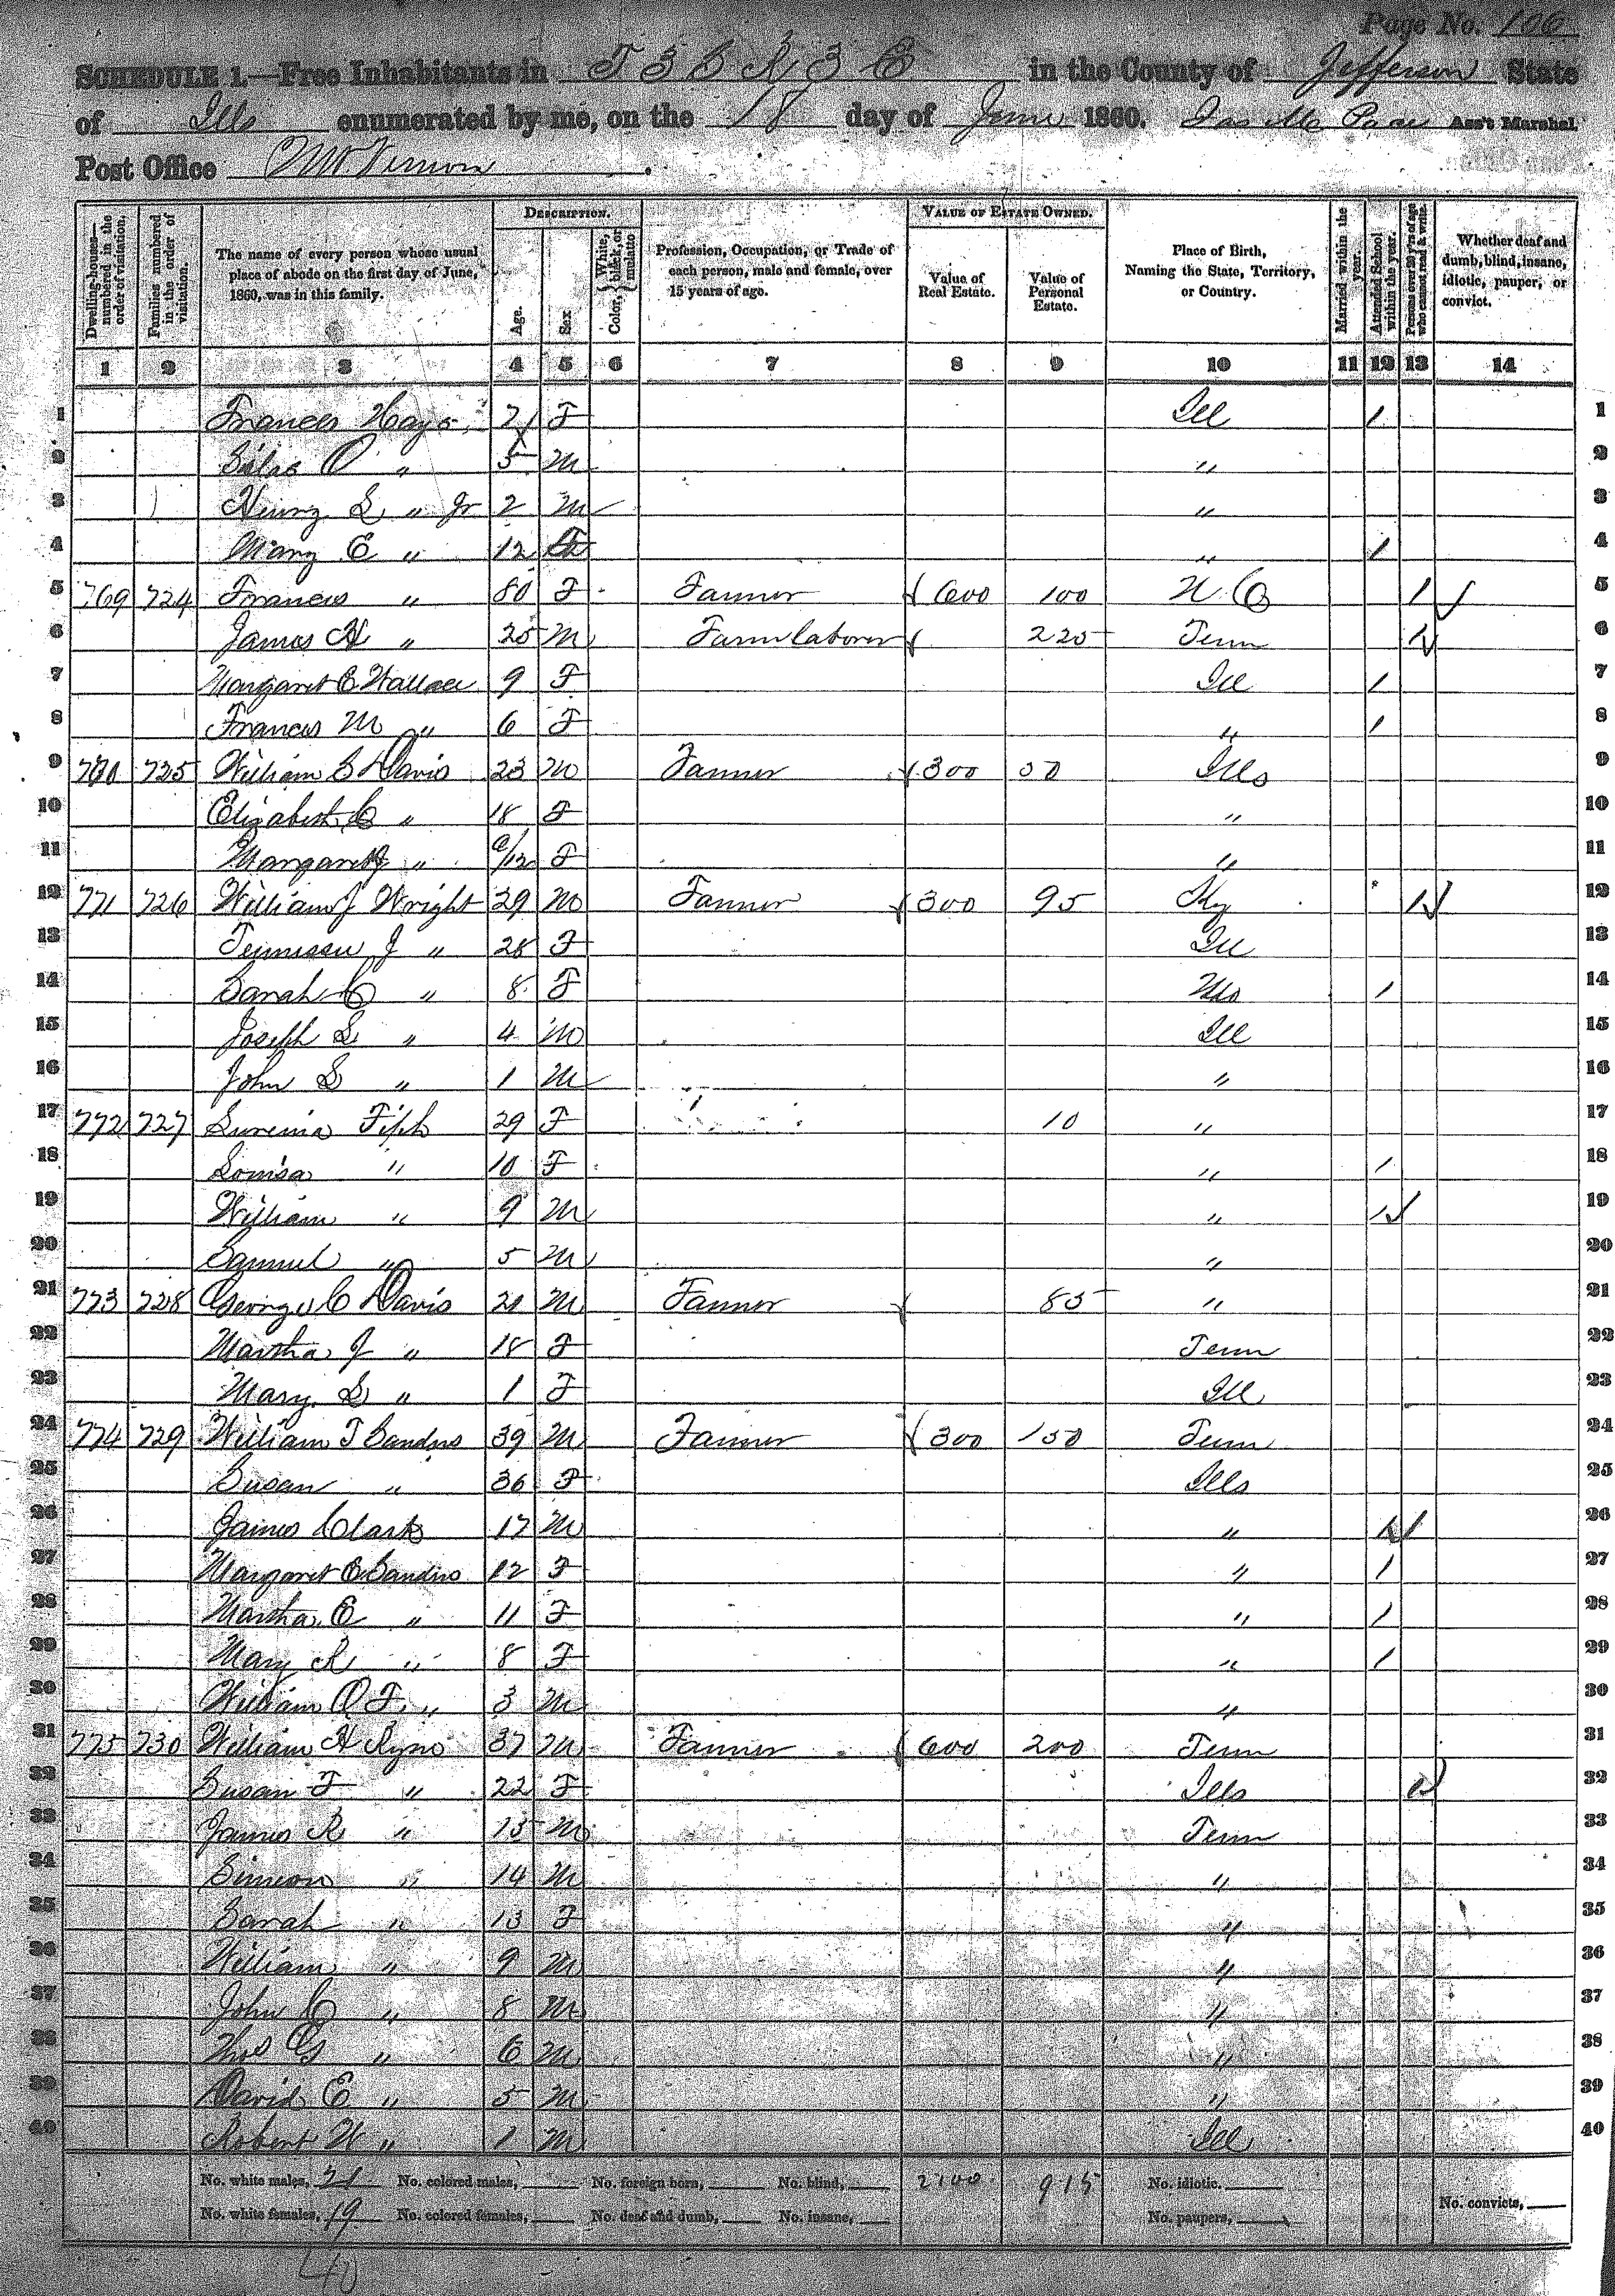 Page No. 106
SCHEDULE 1.—Free Inhabitants in T 3 S R 3 E in the County of Jefferson State
of Ills enumerated by me, on the 18 day of June 1860. Ass't Marshal.
Post Office Mt Vernon.
Dwelling-houses—numbered in the order of visitation. Families numbered in the order of visitation. The name of every person whose usual place of abode on the first day of June, 1860, was in this family. DESCRIPTION. Age. Sex Color, {White, black, or mulatto Profession, Occupation, or Trade of each person, male and female, over 15 years of age. VALUE OF ESTATE OWNED. Value of Real Estate. Value of Personal Estate. Place of Birth, Naming the State, Territory, or Country. Married within the year. Attended School within the year. Persons over 20 y'rs of age who cannot read & write. Whether deaf and dumb, blind, insane, idiotic, pauper, or convict.
1 2 3 4 5 6 7 8 9 10 11 12 13 14
1 Frances Hays 7 F Ill 1 1
2 Silas O " 5 M " 2
3 Henry L " Jr 2 M " 3
4 Mary E " 12 " 1 4
5 769 724 Frances " 80 F Farmer 600 100 N C 1 5
6 James H " 25 M Farm laborer 225 Tenn 1 6
7 Margaret E Wallace 9 F Ill 1 7
8 Frances M " 6 F " 1 8
9 770 725 William S Davis 23 M Farmer 300 50 Ills 9
10 Elizabeth C " 18 F " 10
11 Margaret J " /12 F " 11
12 771 726 William J Wright 29 M Farmer 300 95 Ky 1 12
13 Tennessee J " 28 F Ill 13
14 Sarah C " 8 F Mo 1 14
15 Joseph L " 4 M Ill 15
16 John S " 1 M " 16
17 772 727 Lurena 29 F 10 " 17
18 Louisa " 10 F " 1 18
19 William " 9 M " 1 19
20 Samuel " 5 M " 20
21 773 728 George C Davis 21 M Farmer 85 " 21
22 Martha J " 18 F Tenn 22
23 Mary L " 1 F Ill 23
24 774 729 William T Sanders 39 M Farmer 300 150 Tenn 24
25 Susan " 36 F Ills 25
26 James Clark 17 M " 1 26
27 Margaret E Sanders 12 F " 1 27
28 Martha E " 11 F " 1 28
29 Mary A " 8 F " 1 29
30 William O F " 3 M " 30
31 775 730 William H 37 M Farmer 600 200 Tenn 31
32 Susan F " 22 F Ills 1 32
33 James R " 15 M Tenn 33
34 Simeon " 14 M " 34
35 Sarah " 13 F " 35
36 William " 9 M " 36
37 John C " 8 M " 37
38 Thos G " 6 M " 38
39 David E " 5 M " 39
40 Robert W " 1 M Ill 40
No. white males, 21 No. colored males, No. foreign born, No. blind, 2100 915 No. idiotic.
No. white females, 19 No. colored females, No. deaf and dumb, No. insane, No. paupers, No. convicts,
40